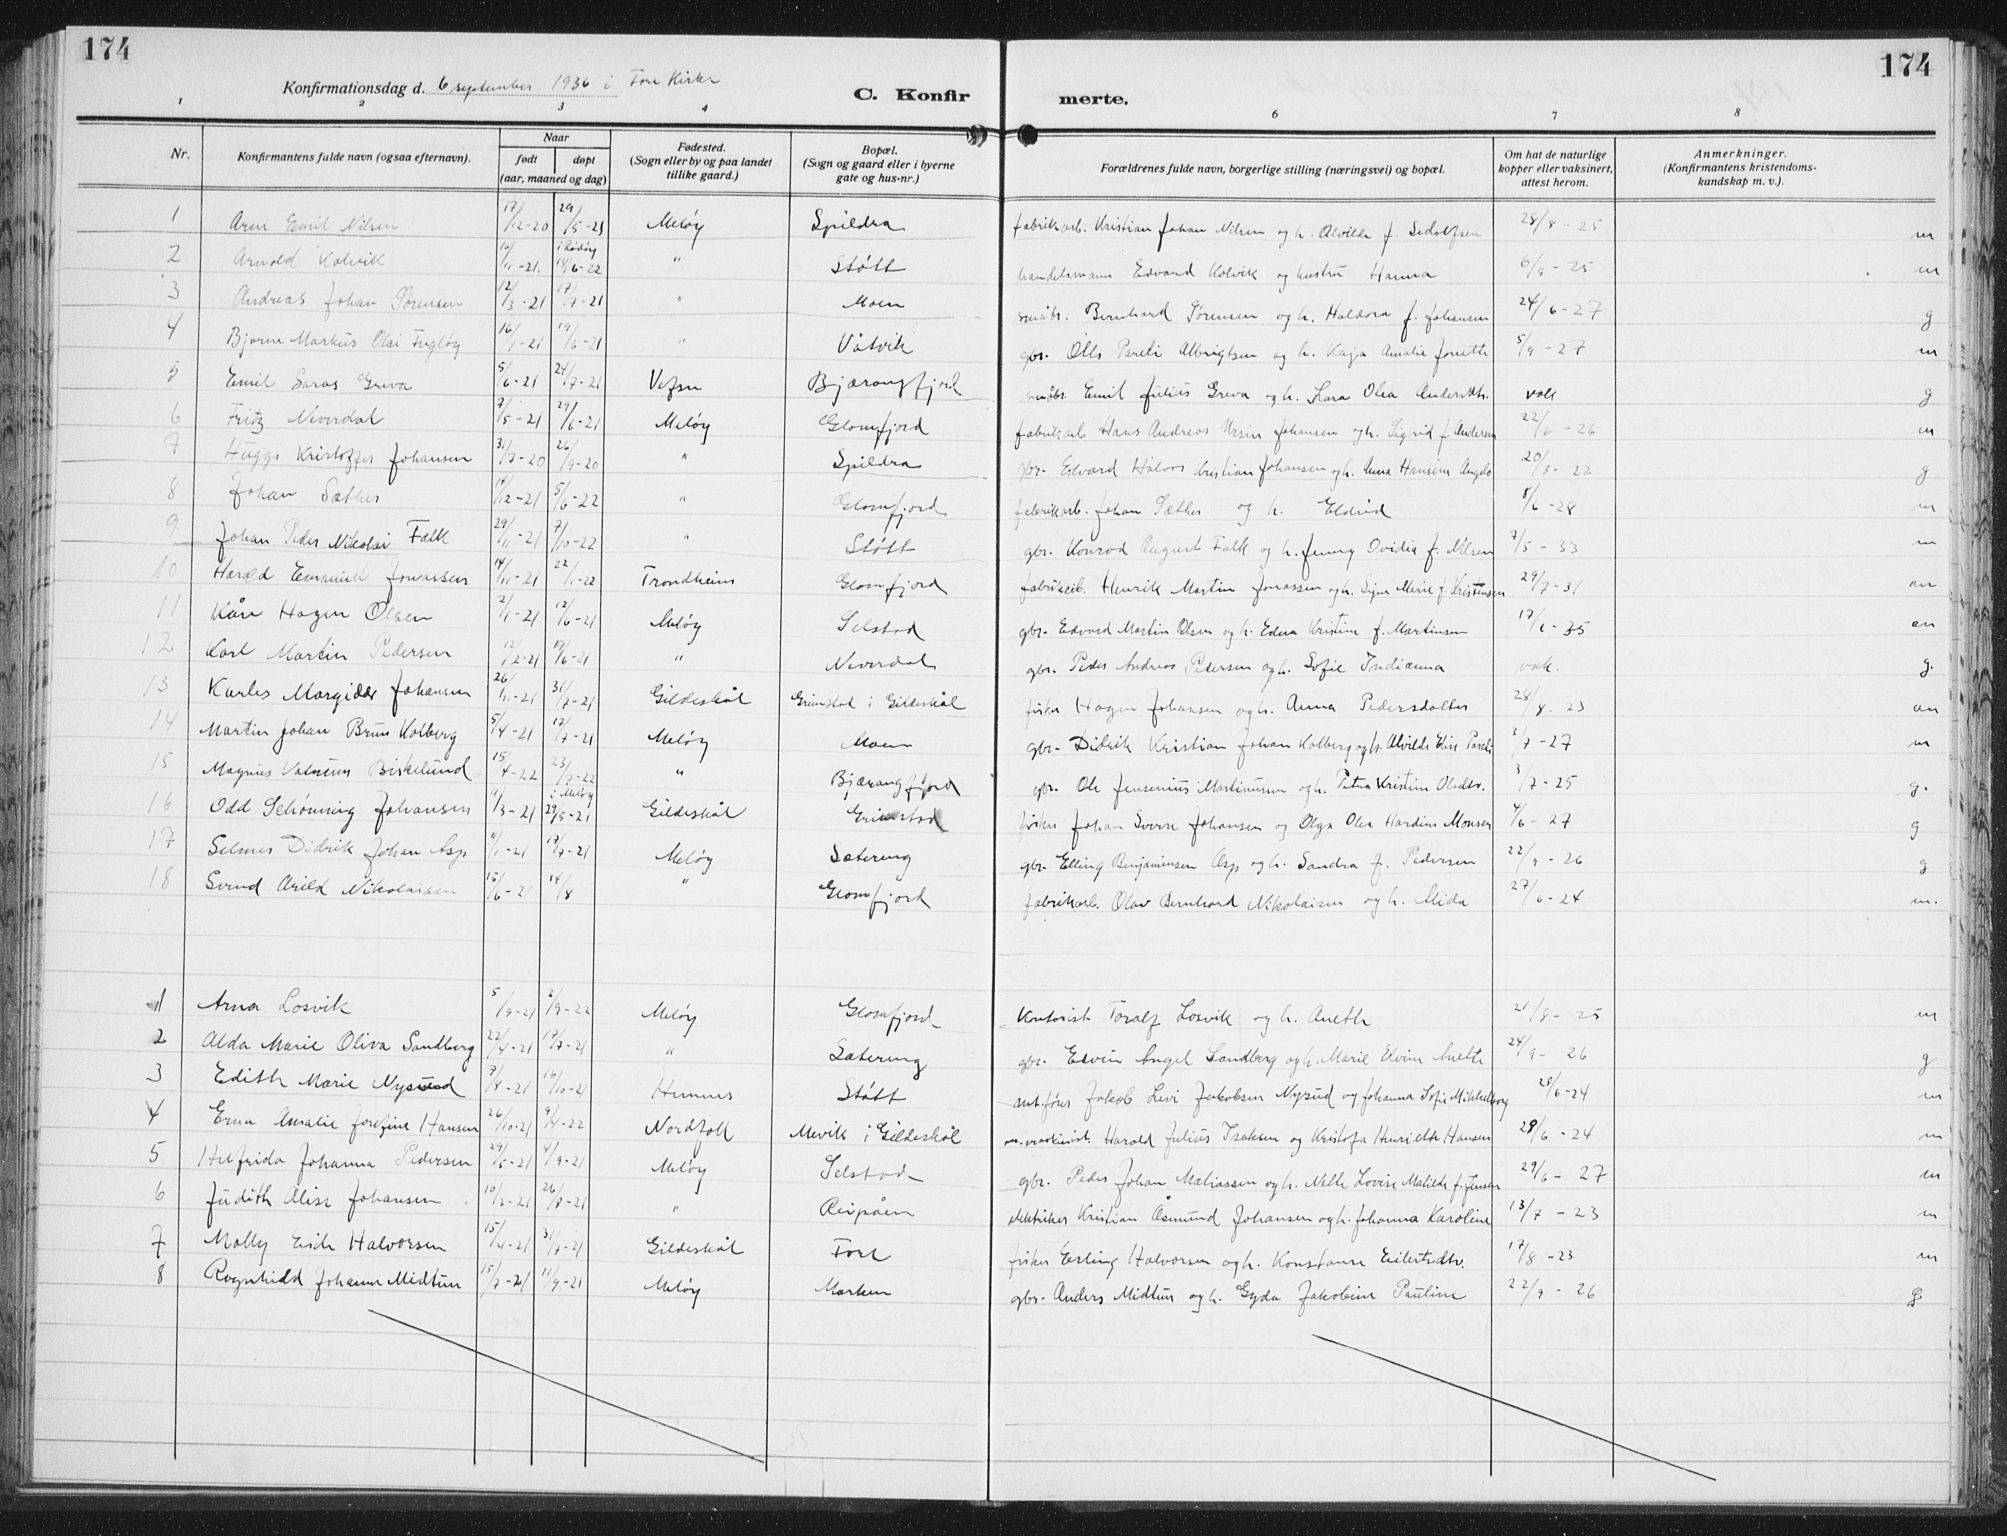 174
174
Konfirmationsdag d. 6 september 1936 i Fore Kirke
C. Konfir merte.
1 2 3 4 6 7 8
Nr. Konfirmantens fulde navn (ogsaa efternavn). Naar født døpt (aar, maaned og dag) Fødested. (Sogn eller by og paa landet tillike gaard.) Bopæl. (Sogn og gaard eller i byerne gate og hus-nr.) Forældrenes fulde navn, borgerlige stilling (næringsvei) og bopæl. Om hat de naturlige kopper eller vaksinert, attest herom. Anmerkninger. (Konfirmantens kristendoms-kundskap m. v.).
1 Arne Emil Nilsen 17/12-20 29/5-21 Meløy Spildra fabrikarb. Kristian Johan Nilsen og h. Alvilde f. Sedolfsen 28/8-25 m
2 Arnold Kolvik 10/11-21. i Rødøy 18/6-22 " Støtt handelsmann Edvard Kolvik og hustru Hanna 6/9-25 m
3 Andreas Johan Sørensen 12/3-21 17/7-21 " Moen småbr. Bernhard Sørensen og h. Haldora f. Johansen 24/6-27 g
4 Bjarne Markus Olai Fugløy 16/1-21 19/6-21 " Våtvik gbr. Olls Pareli Albrigtsen og h. Kaja Amalie Jonette 5/9-27 m
5 Emil Saras Greva 5/6-21 24/7-21 Vefsn Bjærangfjord småbr. Emil Julius Greva og h. Lara Olea Andersdtr. vak g
6 Fritz Neverdal 7/5-21 29/6-21 Meløy Glomfjord fabrikarb Hans Andreas Ursin Johansen og h. Sigrid f. Andersen 22/6-26 m
7 Huggo Kristoffer Johansen 31/7-20 26/9-20 " Spildra gbr. Edvard Halvor Kristian Johansen og h. Anna Hansine Angels 20/8-22 g
8 Johan Sæther 14/12-21 5/6-22 " Glomfjord fabrikarb. Johan Sæther og h. Eldrid 8/6-28 m
9 Johan Peder Nikolai Falk 29/11-21 7/10-22 " Støtt gbr. Konrad August Falk og h. Jenny Ovidia f. Nilsen 7/5-33 m
10 Harald Emanuel Jonassen 14/11-21 22/1-22 Trondheim Glomfjord fabrikarb. Henrik Martin Jonassen og h. Signe Marie f. Kristensen 29/7-31 m
11 Kåre Hagen Olsen 2/1-21 12/6-21 Meløy Selstad gbr. Edvard Martin Olsen og h. Edna Kristine f. Martinsen 17/6-35 m
12 Karl Martin Pedersen 12/2-21 19/6-21 " Neverdal gbr. Peder Andreas Pedersen og h. Sofie Indianna vak. g.
13 Karles Margido Johansen 26/1-21 31/7-21 Gildeskål Grimstad i Gildeskål fisker Hagen Johansen og h. Anna Pedersdatter 28/8-23 m
14 Martin Johan Bruun Kolberg 5/4-21 17/7-21 Meløy Moen gbr. Didrik Kristian Johan Kolberg og h. Alvilde Elise Pareli 2/7-27 m
15 Magnus Valnum Birkelund 15/4-22 23/7-22 " Bjærangfjord gbr. Ole Jensenius Martinussen og h. Petra Kristine Olsdtr. 3/7-25 g.
16 Odd Schønning Johansen 11/3-21 i Meløy 29/5-21 Gildeskål Grimstad fisker Johan Sverre Johansen og Olga Olea Hardine Monsen 4/6-27 g
17 Selmer Didrik Johan Asp 11/1-21 17/7-21 Meløy Sætering gbr. Elling Benjaminsen Asp og h. Sandra f. Pedersen 22/9-26 g
18 Svend Arild Nikolaisen 15/6-21 14/8 " Glomfjord fabrikarb. Olav Bernhard Nikolaisen og h. Alida 27/6-24 m.
1 Arna Losvik 5/9-21 2/9-22 Meløy Glomfjord Kontorist Toralf Losvik og h. Aneth 21/8-25 m
2 Alda Marie Oliva Sandberg 22/4-21 17/7-21 " Sætering gbr. Edvin Angel Sandberg og h. Marie Elvine Anette 24/9-26 g
3 Edith Marie Nysund 7/8-21 16/10-21 Hemnes Støtt mt.fører Jakob Levi Jakobsen Nysud og Johanna Sofie Mikkelborg 28/6-24 m
4 Erna Amalie Josefine Hansen 26/10-21 9/4-22 Nordfoll Mevik i Gildeskål Harald Julius Isaksen og Kristofa Henriette Hansen 28/6-24 m
5 Helfrida Johanna Pedersen 29/5-21 4/9-21 Meløy Selstad gbr. Peder Johan Matiassen og h. Nelle Lovise Matilde f. Jensen 29/6-27 m
6 Judith Alise Johansen 10/3-21 26/7-21 " Reipåen elektriker Kristian Åsmund Johansen og h. Johanna Karoline 13/7-23 m
7 Molly Eide Halvorsen 15/4-21 31/7-21 Gildeskål Fore fisker Erling Halvorsen og h. Konstanse Eilertsdtr. 17/8-23 m
8 Ragnhild Johanne Midtun 15/7-21 11/9-21 Meløy Marken gbr. Anders Midtun og h. Gyda Jakobine Pauline 22/9-26 g.